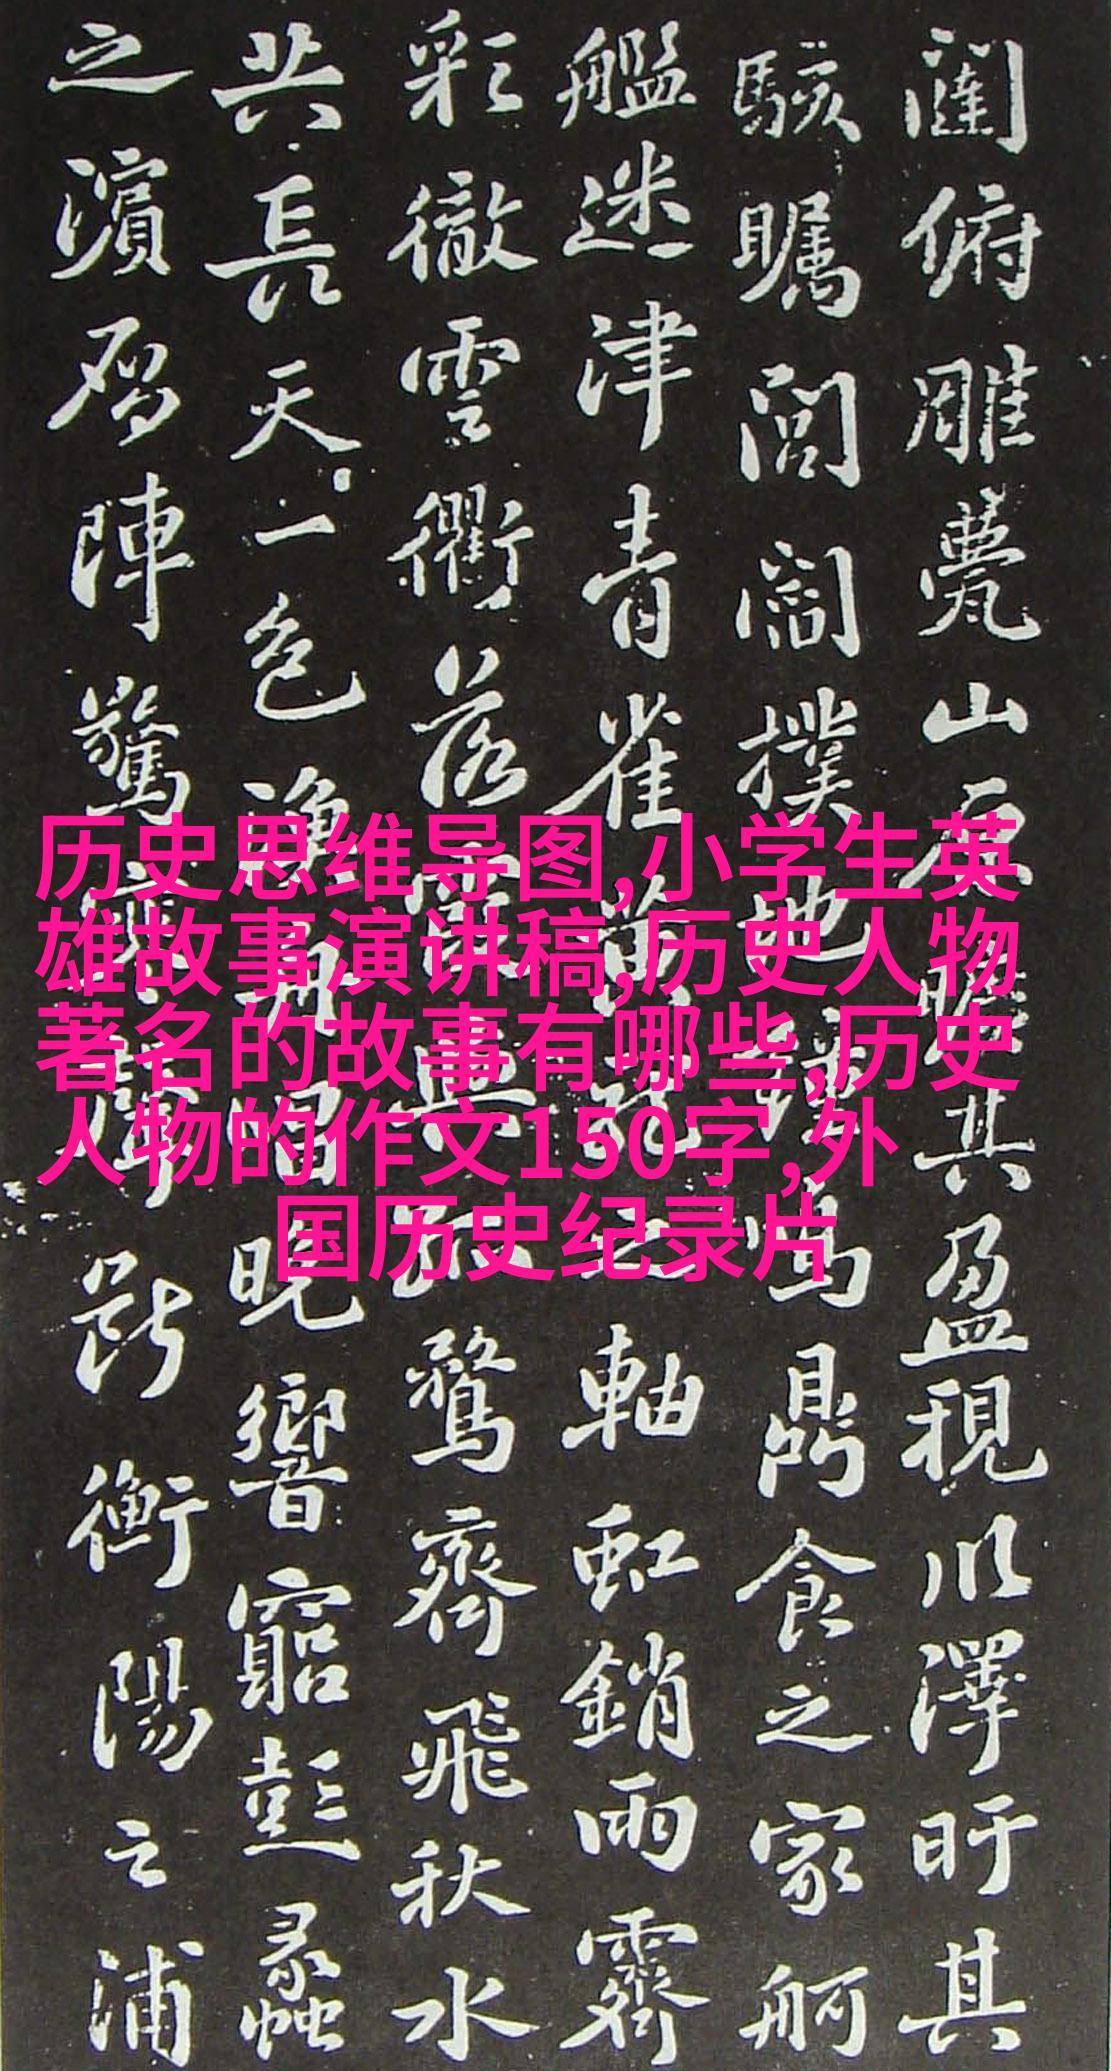 闥俯雕甍山原曠其盈視川澤盱其
駭矚閭閻撲地鐘鳴鼎食之家舸
艦迷津青雀黄龍之軸虹銷雨霽
彩徹雲衢落霞與孤鶩齊飛秋水
共長天一色漁舟唱晚響窮彭蠡
之濱雁陣驚寒聲斷衡陽之浦
历史思维导图,小学生英
雄故事演讲稿,历史人物
著名的故事有哪些,历史
人物的作文150字,外
国历史纪录片